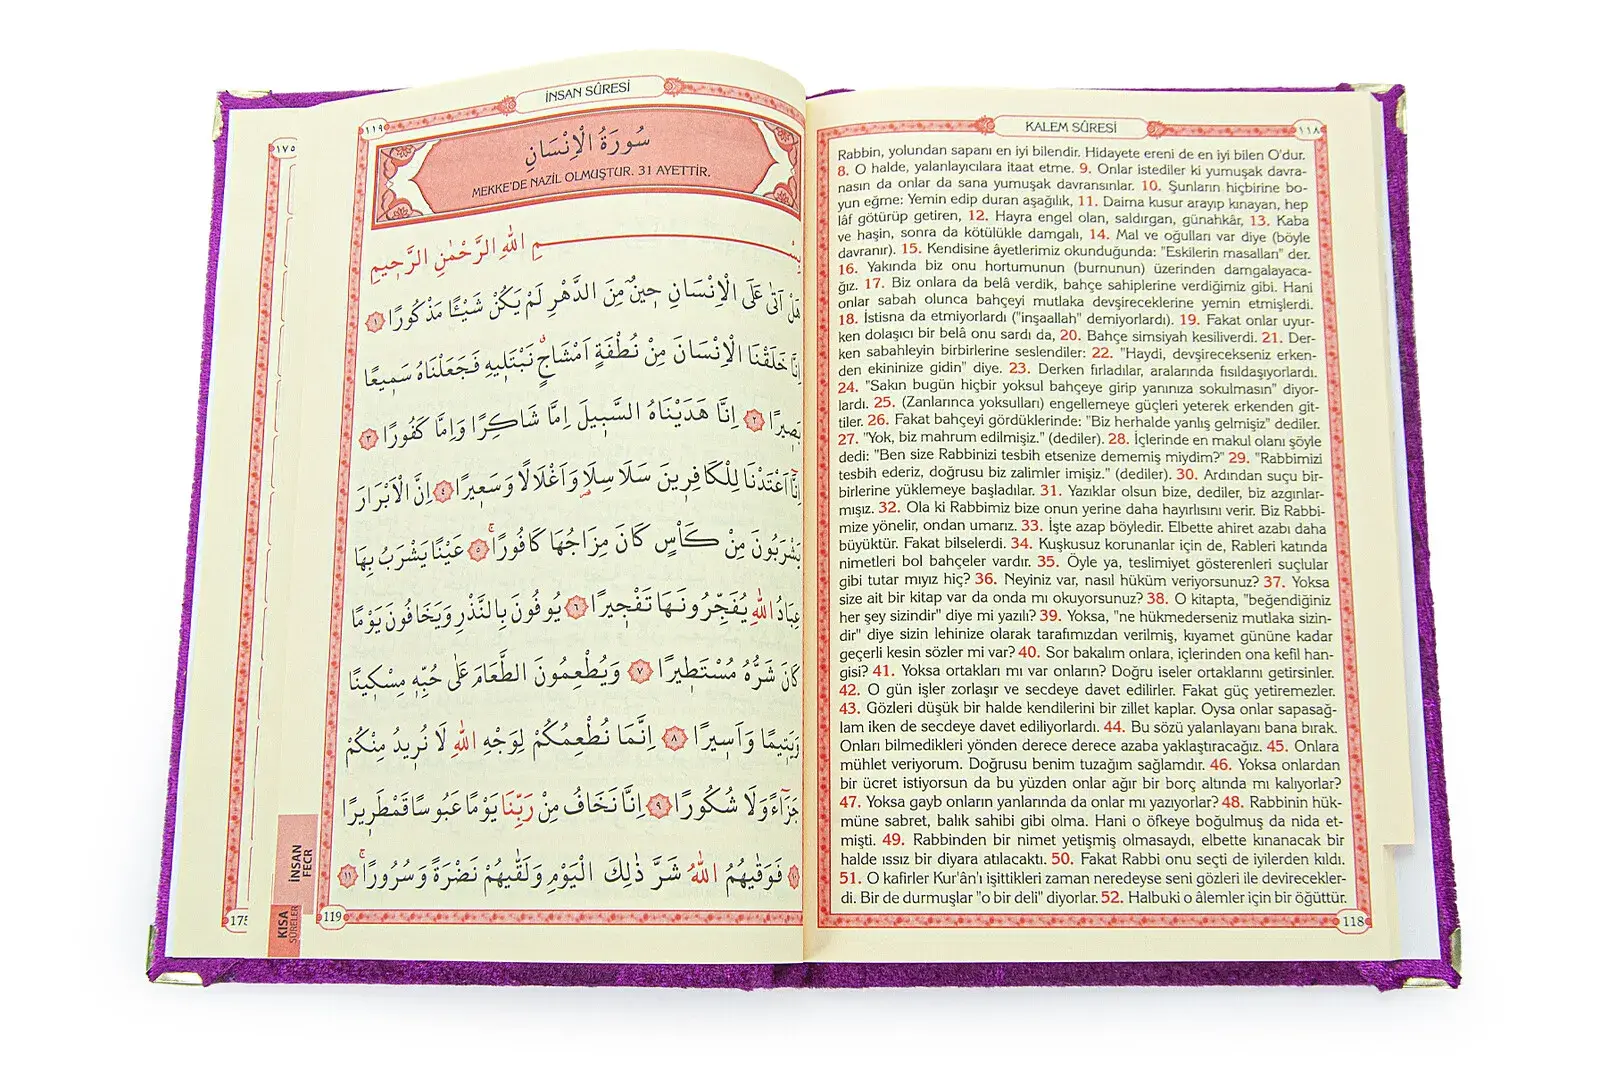 İNSAN SÛRESİ
١١٩
سُورَةُ الْاِنْسَانِ
MEKKE'DE NAZİL OLMUŞTUR. 31 AYETTİR.
بِسْمِ اللّٰهِ الرَّحْمٰنِ الرَّح۪يمِ
هَلْ اَتٰى عَلَى الْاِنْسَانِ ح۪ينٌ مِنَ الدَّهْرِ لَمْ يَكُنْ شَيْـًٔا مَذْكُورًا ١
اِنَّا خَلَقْنَا الْاِنْسَانَ مِنْ نُطْفَةٍ اَمْشَاجٍۗ نَبْتَل۪يهِ فَجَعَلْنَاهُ سَم۪يعًا
بَص۪يرًا ٢ اِنَّا هَدَيْنَاهُ السَّب۪يلَ اِمَّا شَاكِرًا وَاِمَّا كَفُورًا ٣
اِنَّٓا اَعْتَدْنَا لِلْكَافِر۪ينَ سَلَاسِلَا۬ وَاَغْلَالًا وَسَع۪يرًا ٤ اِنَّ الْاَبْرَارَ
يَشْرَبُونَ مِنْ كَاْسٍ كَانَ مِزَاجُهَا كَافُورًاۚ ٥ عَيْنًا يَشْرَبُ بِهَا
عِبَادُ اللّٰهِ يُفَجِّرُونَهَا تَفْج۪يرًا ٦ يُوفُونَ بِالنَّذْرِ وَيَخَافُونَ يَوْمًا
كَانَ شَرُّهُ مُسْتَط۪يرًا ٧ وَيُطْعِمُونَ الطَّعَامَ عَلٰى حُبِّه۪ مِسْك۪ينًا
وَيَت۪يمًا وَاَس۪يرًا ٨ اِنَّمَا نُطْعِمُكُمْ لِوَجْهِ اللّٰهِ لَا نُر۪يدُ مِنْكُمْ
جَزَٓاءً وَلَا شُكُورًا ٩ اِنَّا نَخَافُ مِنْ رَبِّنَا يَوْمًا عَبُوسًا قَمْطَر۪يرًا
١٠ فَوَقٰيهُمُ اللّٰهُ شَرَّ ذٰلِكَ الْيَوْمِ وَلَقّٰيهُمْ نَضْرَةً وَسُرُورًاۚ ١١
119
İNSAN
FECR
KISA
SÛRELER
١٧٥
175
KALEM SÛRESİ
١١٨
Rabbin, yolundan sapanı en iyi bilendir. Hidayete ereni de en iyi bilen O'dur.
8. O halde, yalanlayıcılara itaat etme. 9. Onlar istediler ki yumuşak davra-
nasın da onlar da sana yumuşak davransınlar. 10. Şunların hiçbirine bo-
yun eğme: Yemin edip duran aşağılık, 11. Daima kusur arayıp kınayan, hep
lâf götürüp getiren, 12. Hayra engel olan, saldırgan, günahkâr, 13. Kaba
ve haşin, sonra da kötülükle damgalı, 14. Mal ve oğulları var diye (böyle
davranır). 15. Kendisine âyetlerimiz okunduğunda: "Eskilerin masalları" der.
16. Yakında biz onu hortumunun (burnunun) üzerinden damgalayaca-
ğız. 17. Biz onlara da belâ verdik, bahçe sahiplerine verdiğimiz gibi. Hani
onlar sabah olunca bahçeyi mutlaka devşireceklerine yemin etmişlerdi.
18. İstisna da etmiyorlardı ("inşaallah" demiyorlardı). 19. Fakat onlar uyur-
ken dolaşıcı bir belâ onu sardı da, 20. Bahçe simsiyah kesiliverdi. 21. Der-
ken sabahleyin birbirlerine seslendiler: 22. "Haydi, devşirecekseniz erken-
den ekininize gidin" diye. 23. Derken fırladılar, aralarında fısıldaşıyorlardı.
24. "Sakın bugün hiçbir yoksul bahçeye girip yanınıza sokulmasın" diyor-
lardı. 25. (Zanlarınca yoksulları) engellemeye güçleri yeterek erkenden git-
tiler. 26. Fakat bahçeyi gördüklerinde: "Biz herhalde yanlış gelmişiz" dediler.
27. "Yok, biz mahrum edilmişiz." (dediler). 28. İçlerinde en makul olanı şöyle
dedi: "Ben size Rabbinizi tesbih etsenize dememiş miydim?" 29. "Rabbimizi
tesbih ederiz, doğrusu biz zalimler imişiz." (dediler). 30. Ardından suçu bir-
birlerine yüklemeye başladılar. 31. Yazıklar olsun bize, dediler, biz azgınlar-
mışız. 32. Ola ki Rabbimiz bize onun yerine daha hayırlısını verir. Biz Rabbi-
mize yönelir, ondan umarız. 33. İşte azap böyledir. Elbette ahiret azabı daha
büyüktür. Fakat bilselerdi. 34. Kuşkusuz korunanlar için de, Rableri katında
nimetleri bol bahçeler vardır. 35. Öyle ya, teslimiyet gösterenleri suçlular
gibi tutar mıyız hiç? 36. Neyiniz var, nasıl hüküm veriyorsunuz? 37. Yoksa
size ait bir kitap var da onda mı okuyorsunuz? 38. O kitapta, "beğendiğiniz
her şey sizindir" diye mi yazılı? 39. Yoksa, "ne hükmederseniz mutlaka sizin-
dir" diye sizin lehinize olarak tarafımızdan verilmiş, kıyamet gününe kadar
geçerli kesin sözler mi var? 40. Sor bakalım onlara, içlerinden ona kefil han-
gisi? 41. Yoksa ortakları mı var onların? Doğru iseler ortaklarını getirsinler.
42. O gün işler zorlaşır ve secdeye davet edilirler. Fakat güç yetiremezler.
43. Gözleri düşük bir halde kendilerini bir zillet kaplar. Oysa onlar sapasağ-
lam iken de secdeye davet ediliyorlardı. 44. Bu sözü yalanlayanı bana bırak.
Onları bilmedikleri yönden derece derece azaba yaklaştıracağız. 45. Onlara
mühlet veriyorum. Doğrusu benim tuzağım sağlamdır. 46. Yoksa onlardan
bir ücret istiyorsun da bu yüzden onlar ağır bir borç altında mı kalıyorlar?
47. Yoksa gayb onların yanlarında da onlar mı yazıyorlar? 48. Rabbinin hük-
müne sabret, balık sahibi gibi olma. Hani o öfkeye boğulmuş da nida et-
mişti. 49. Rabbinden bir nimet yetişmiş olmasaydı, elbette kınanacak bir
halde ıssız bir diyara atılacaktı. 50. Fakat Rabbi onu seçti de iyilerden kıldı.
51. O kafirler Kur'ân'ı işittikleri zaman neredeyse seni gözleri ile devirecekler-
di. Bir de durmuşlar "o bir deli" diyorlar. 52. Halbuki o âlemler için bir öğüttür.
118